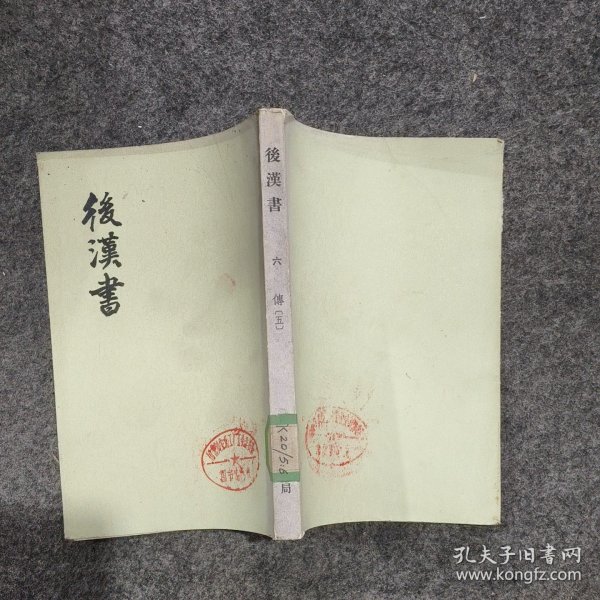 後漢書
後漢書
六
傳〔五〕
K20/5.6
局
孔夫子旧书网
www.kongfz.com